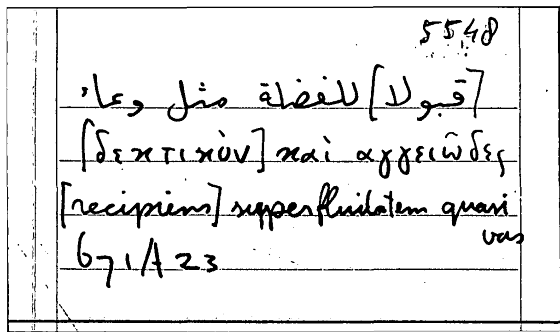 5548
[قبولا] للفضلة مثل وعاء
[δεκτικὸν] καὶ ἀγγειῶδες
[recipiens] superfluitatem quasi
vas
671A23